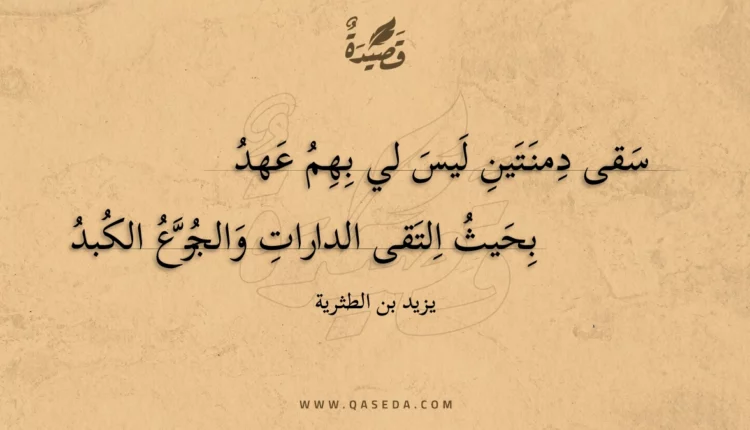 قَصِيْدَةٌ
سَقى دِمنَتَينِ لَيسَ لي بِهِمُ عَهدُ
بِحَيثُ اِلتَقى الداراتِ وَالجُرَّعُ الكُبدُ
يزيد بن الطثرية
WWW.QASEDA.COM